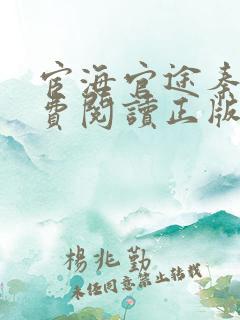 官海官途秦
費閱讀正版
楊兆勤
未任同意禁止转载